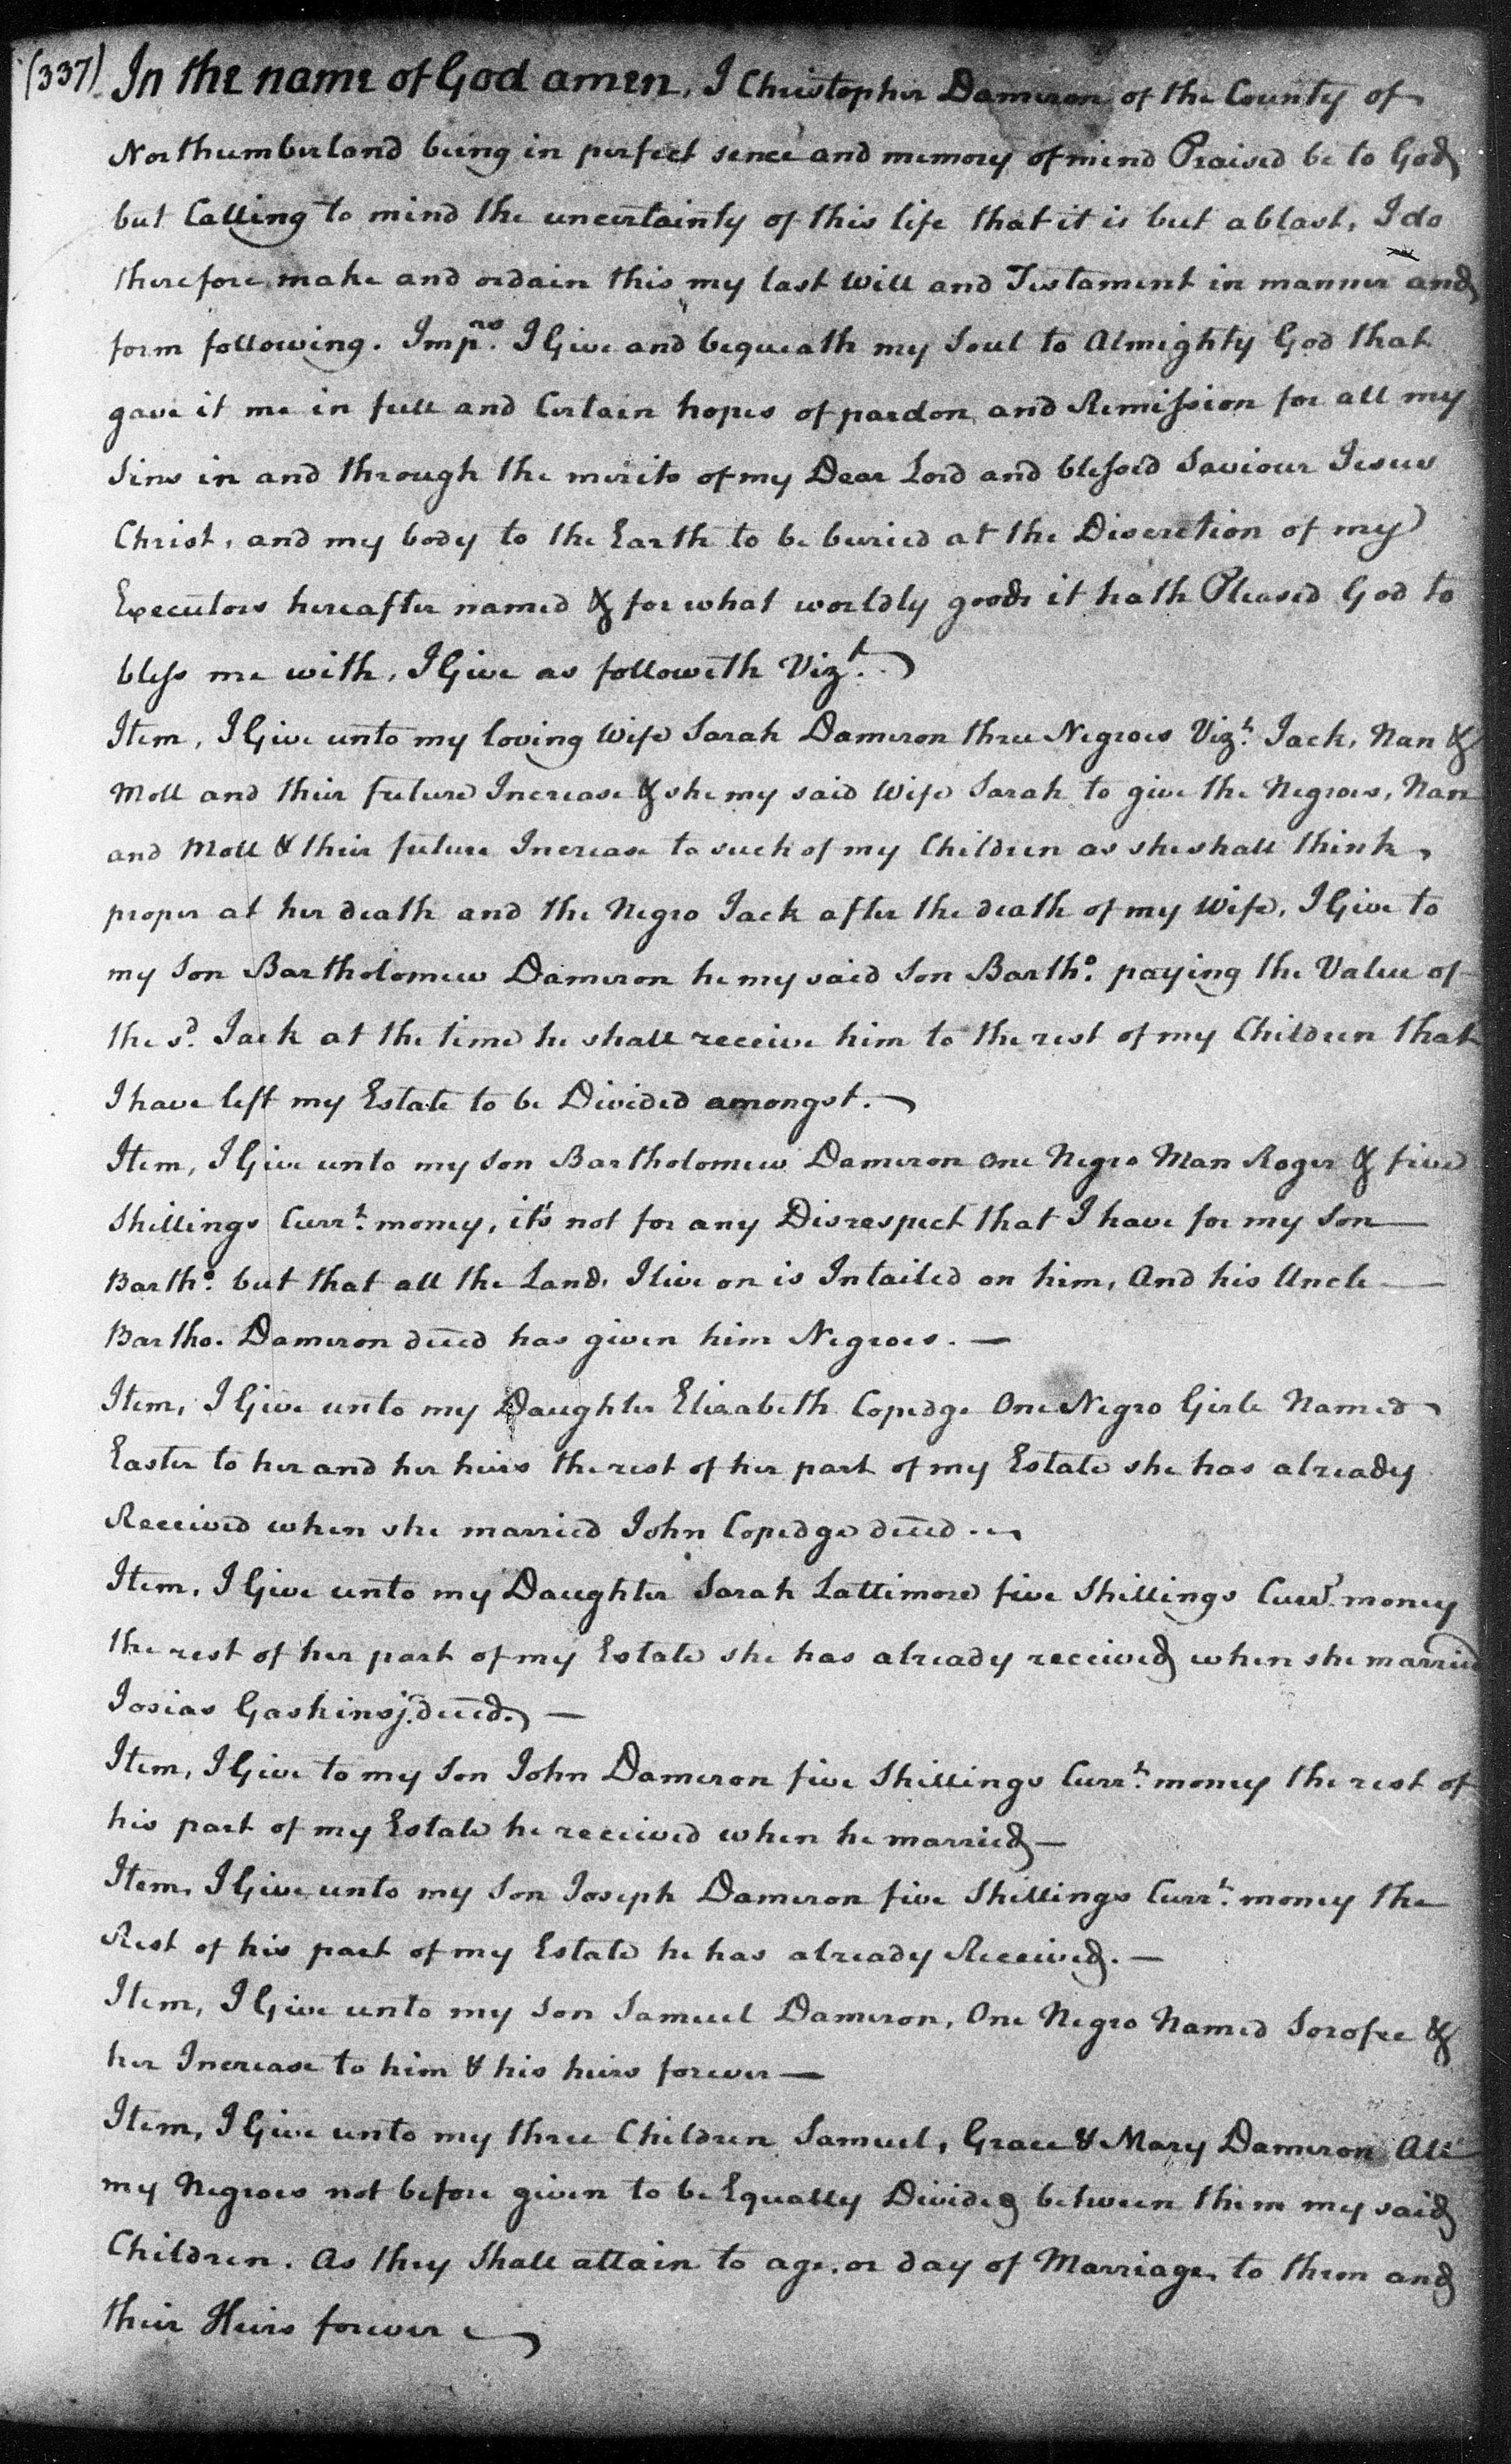 (337) In the name of God amen, I Christopher Dameron of the County of
Northumberland being in perfect sence and memory of mind Praised be to God
but Calling to mind the uncertainty of this life that it is but a blast, I do
therefore make and ordain this my last Will and Testament in manner and
form following. Impros. I Give and bequeath my Soul to Almighty God that
gave it me in full and Certain hopes of pardon and Remission for all my
Sins in and through the merits of my Dear Lord and blessed Saviour Jesus
Christ, and my body to the Earth to be buried at the Discretion of my
Executors hereafter named & for what worldly goods it hath Pleased God to
bless me with, I Give as followeth Vizt.
Item, I Give unto my loving Wife Sarah Dameron three Negroes Vizt. Jack, Nan &
Moll and their future Increase & she my said Wife Sarah to give the Negroes, Nan
and Moll & their future Increase to such of my Children as she shall think,
proper at her death and the Negro Jack after the death of my Wife, I Give to
my Son Bartholomew Dameron he my said Son Bartho. paying the Value of
the sd. Jack at the time he shall receive him to the rest of my Children that
I have left my Estate to be Divided amongst.
Item, I Give unto my Son Bartholomew Dameron One Negro Man Roger & five
Shillings Currt. money, it's not for any Disrespect that I have for my Son
Bartho. but that all the Land, I live on is Intailed on him, And his Uncle
Bartho. Dameron deced has given him Negroes. —
Item, I Give unto my Daughter Elizabeth Copedge One Negro Girle Named
Easter to her and her heirs the rest of her part of my Estate she has already
Received when she married John Copedge deced.
Item, I Give unto my Daughter Sarah Lattimore five Shillings Currt. money
the rest of her part of my Estate she has already received when she married
Josias Gaskins j. deced. —
Item, I Give to my Son John Dameron five Shillings Currt. money the rest of
his part of my Estate he received when he married —
Item, I Give unto my Son Joseph Dameron five Shillings Currt. money the
Rest of his part of my Estate he has already Received. —
Item, I Give unto my Son Samuel Dameron, One Negro Named Sorofee &
her Increase to him & his heirs forever —
Item, I Give unto my three Children Samuel, Grace & Mary Dameron All
my Negroes not before given to be Equally Divided between them my said
Children. As they Shall attain to age, or day of Marriage, to them and
their Heirs forever